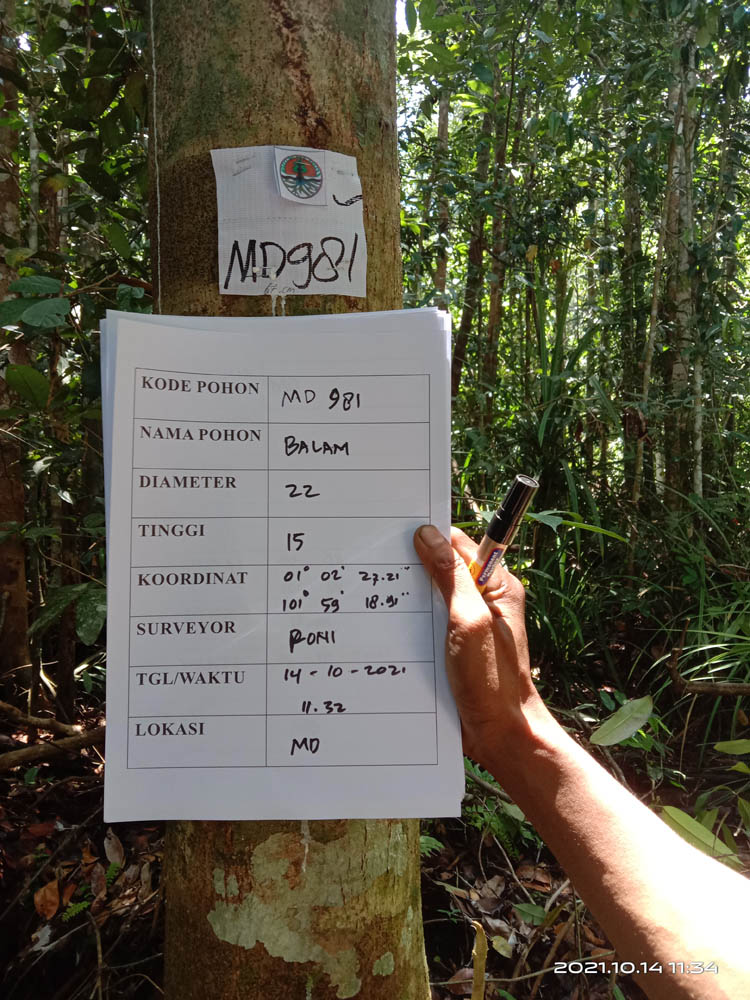 MD981
67 cm
KODE POHON MD 981
NAMA POHON BALAM
DIAMETER 22
TINGGI 15
KOORDINAT 01° 02' 27.21"
101° 59' 18.91"
SURVEYOR RONI
TGL/WAKTU 14-10-2021
11.32
LOKASI MD
2021.10.14 11:34